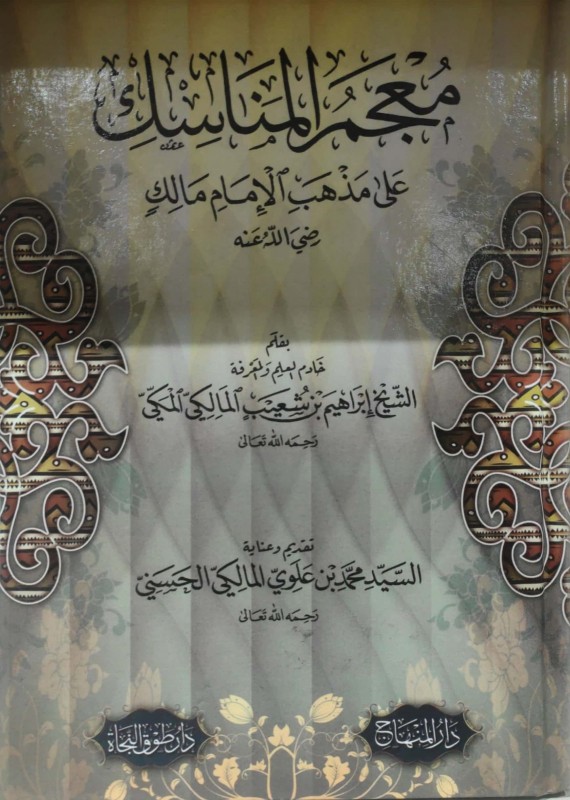 مُعْجَمُ المَنَاسِكِ
عَلَى مَذْهَبِ الإِمَامِ مَالِكٍ
رَضِيَ اللَّهُ عَنْهُ
بقلم
خادم العلم والمعرفة
الشّيخ إِبْرَاهِيم بْن شُعَيْبٍ المَالِكِيّ المَكِّيّ
رَحِمَه الله تَعَالىٰ
تقديم وعناية
السَيِّد محمَّد بْن عَلَوِيّ المَالِكِيّ الحَسَنِيّ
رَحِمَه الله تَعَالىٰ
دَارُ المِنْهَاج
دَار طَوْق النَّجَاة